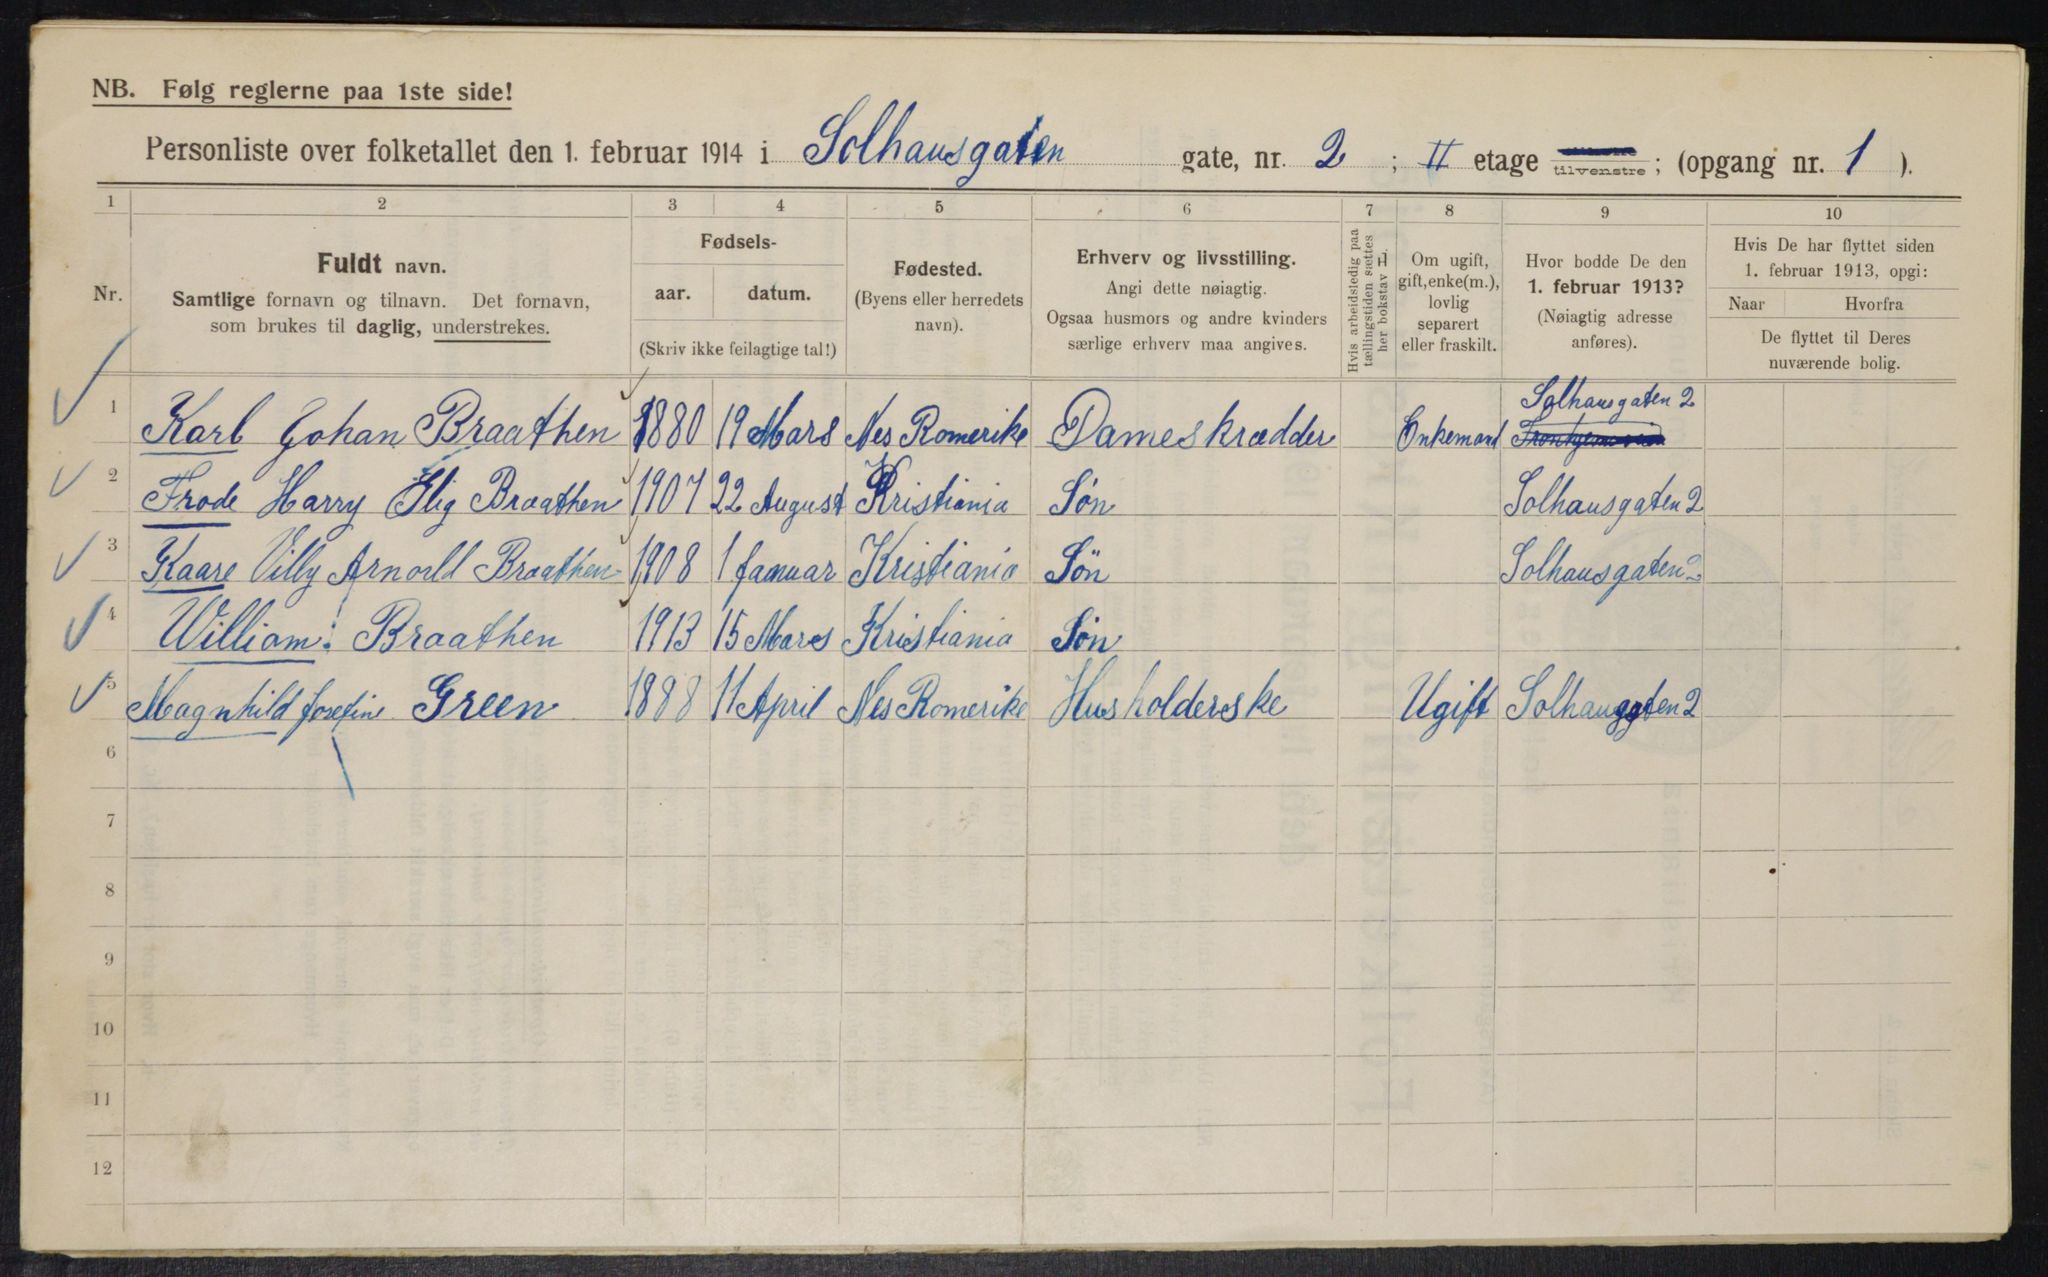 NB. Følg reglerne paa 1ste side!
Personliste over folketallet den 1. februar 1914 i Solhausgaten gate, nr. 2 ; II etage tilvenstre ; (opgang nr. 1 ).
1 2 3 4 5 6 7 8 9 10
Nr.
Fuldt navn.
Samtlige fornavn og tilnavn. Det fornavn,
som brukes til daglig, understrekes.
Fødsels-
aar. datum.
(Skriv ikke feilagtige tal!)
Fødested.
(Byens eller herredets
navn).
Erhverv og livsstilling.
Angi dette nøiagtig.
Ogsaa husmors og andre kvinders
særlige erhverv maa angives.
Hvis arbeidsledig paa
tællingstiden sættes
her bokstav L.
Om ugift,
gift, enke(m.),
lovlig
separert
eller fraskilt.
Hvor bodde De den
1. februar 1913?
(Nøiagtig adresse
anføres).
Hvis De har flyttet siden
1. februar 1913, opgi:
Naar Hvorfra
De flyttet til Deres
nuværende bolig.
Solhausgaten 2
1 Karl Johan Braathen 1880 19 Mars Nes Romerike Dameskrædder Enkemand
2 Frode Harry Elig Braathen 1907 22 August Kristiania Søn Solhausgaten 2
3 Kaare Villy Arnorld Braathen 1908 1 Januar Kristiania Søn Solhausgaten 2
4 William Braathen 1913 15 Mars Kristiania Søn
5 Magnhild Josefine Green 1888 11 April Nes Romerike Husholderske Ugift Solhausgaten 2
6
7
8
9
10
11
12